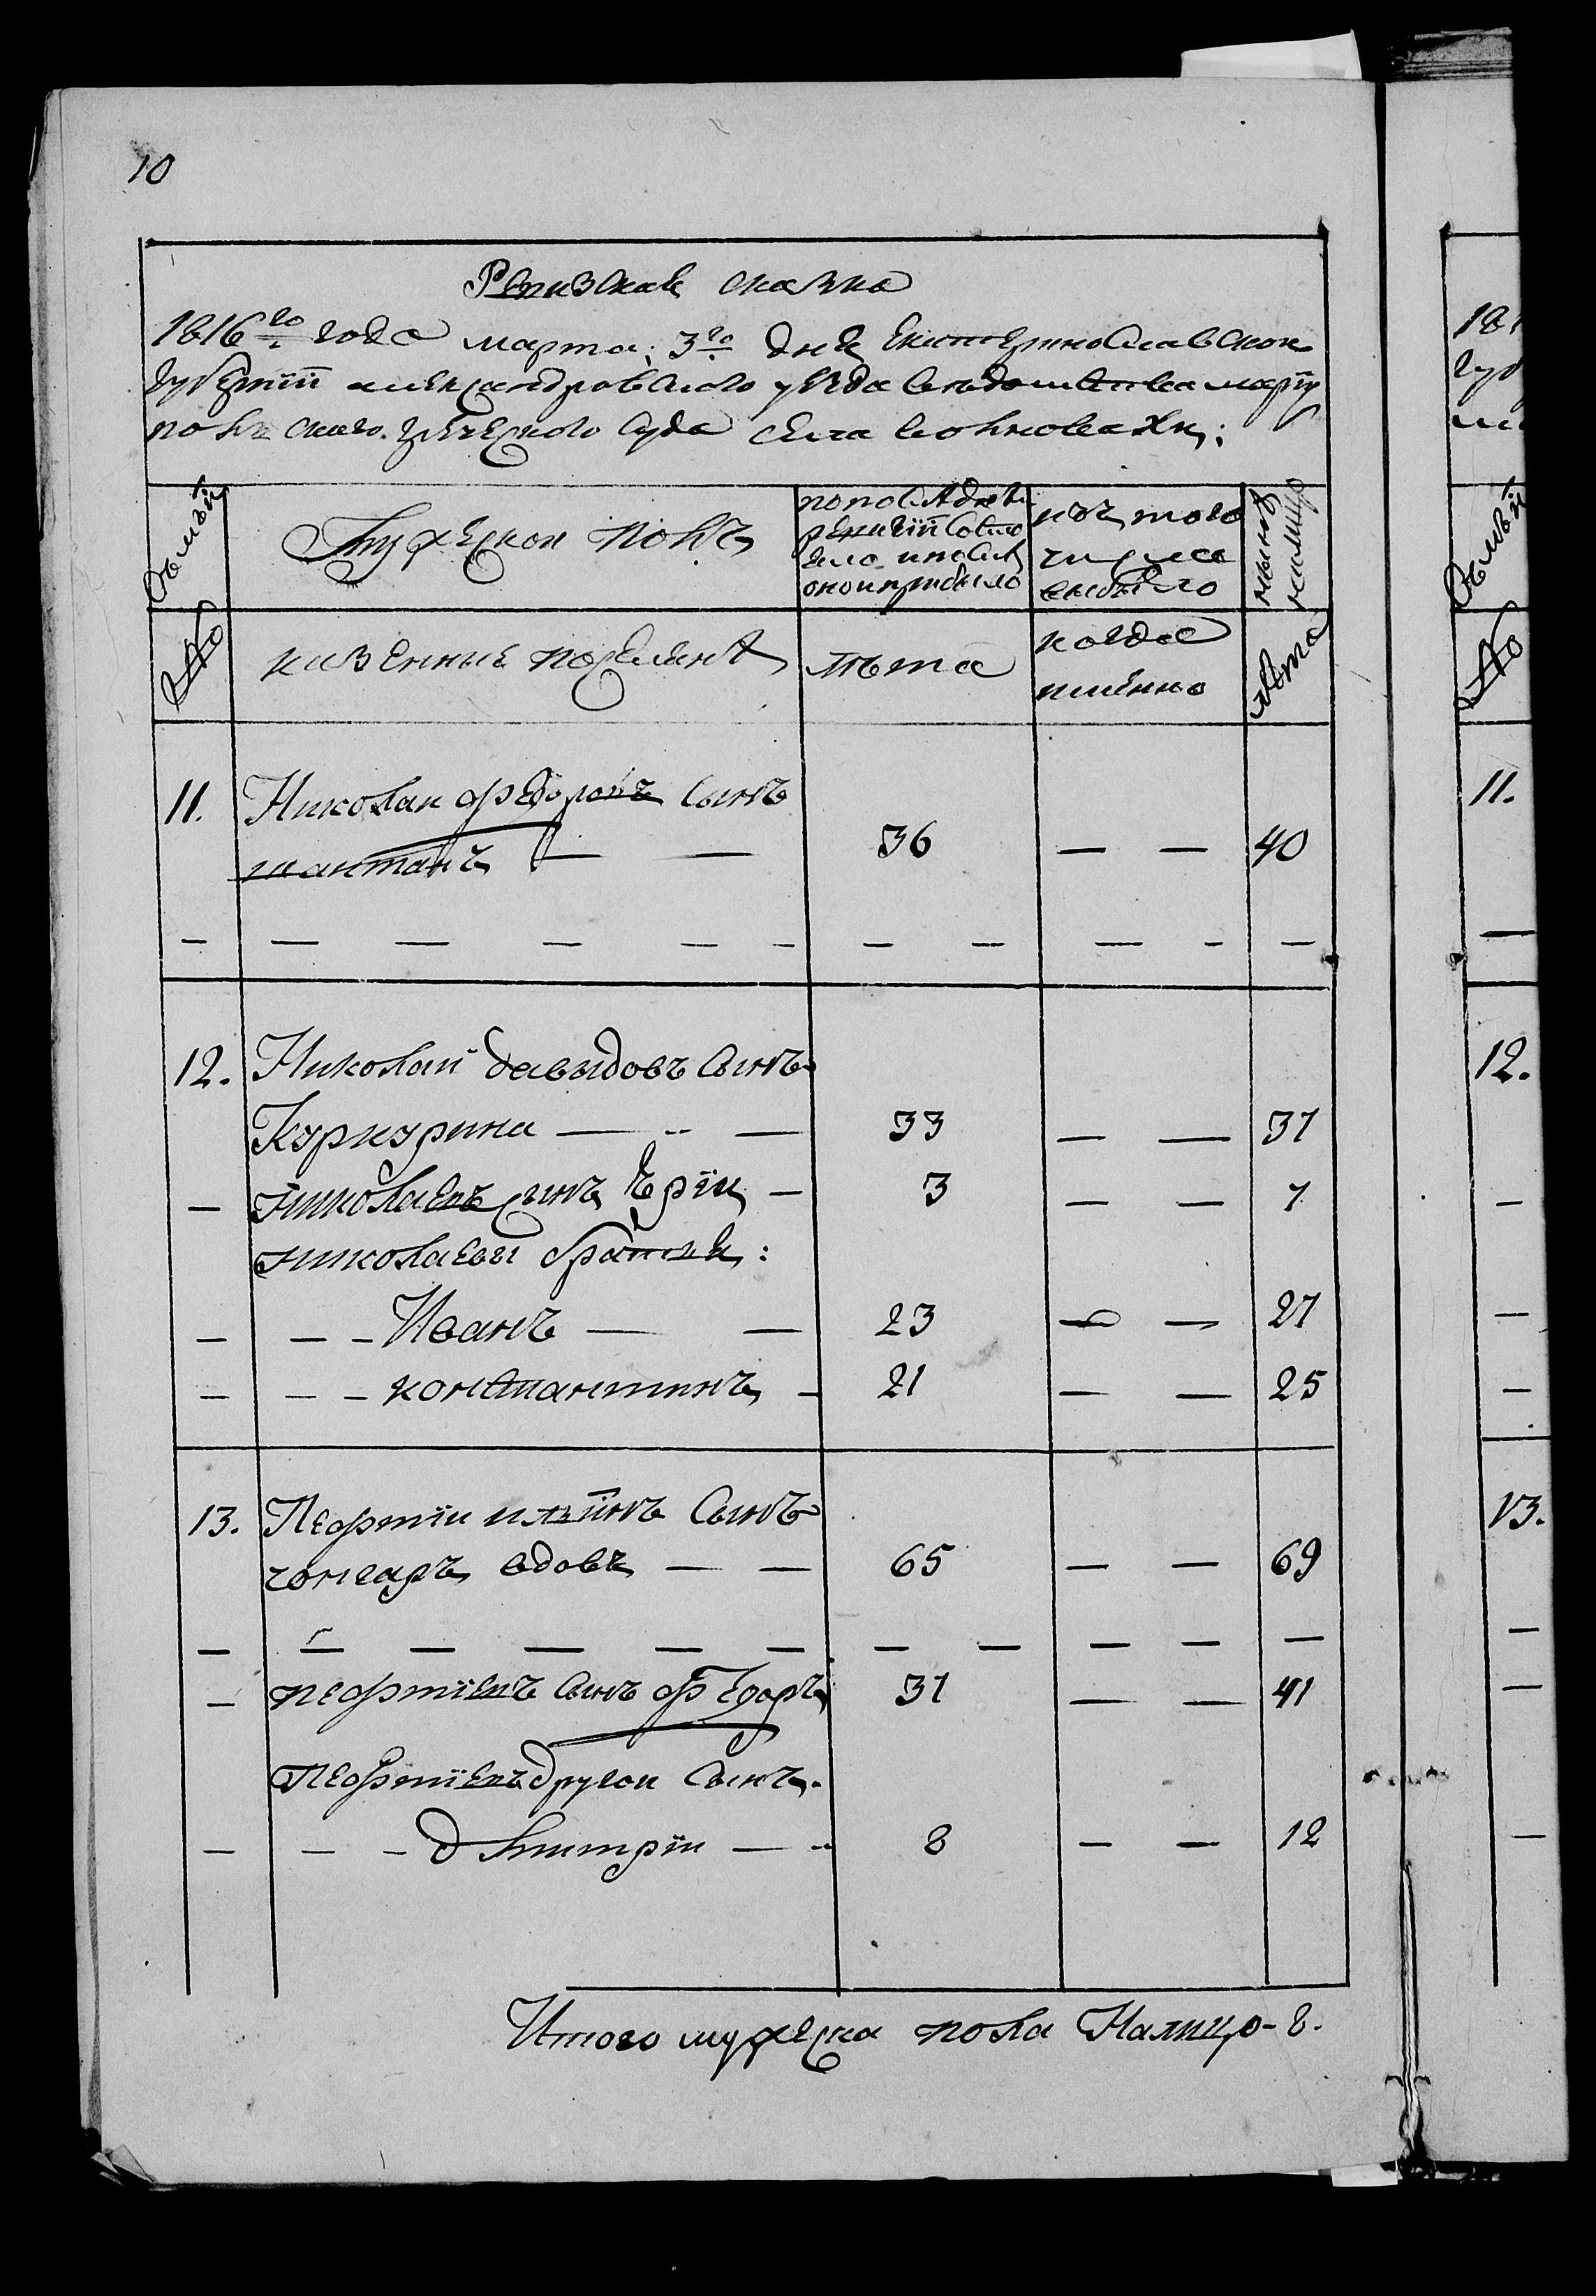 10
Ревизская сказка
1816го года марта 3го дня Екатеринославской
Губернии александровского уезда ведомства мариу
польского греческого Суда села волноваха;
№ Семьи
Мужеской полъ
по последней ревизии состояло и после оной прибыло
изъ того числа выбыло
ныне на лицо
казенные поселяне
лета
когда именно
лета
11. Николаи федоровъ Сынъ
шантанъ — — 36 — — 40
— — — — — — — — — — —
12. Николай давыдовъ Сынъ
Куркурина — — 33 — — 37
— николаевъ сынъ Юрiи — 3 — — 7
николаевы братья:
— — — Иванъ — — 23 — — 27
— — — константинъ — 21 — — 25
13. Пефтiи ильинъ Сынъ
чонгаръ вдовъ — — 65 — — 69
— — — — — — — — — — —
— пефтiевъ Сынъ федоръ 37 — — 41
Пефтiевъ другои Сынъ.
— — — дмитрiи — — 8 — — 12
Итого мужеска пола Налицо - 8.
18
губ
11.
—
12.
—
—
—
13.
—
—
—